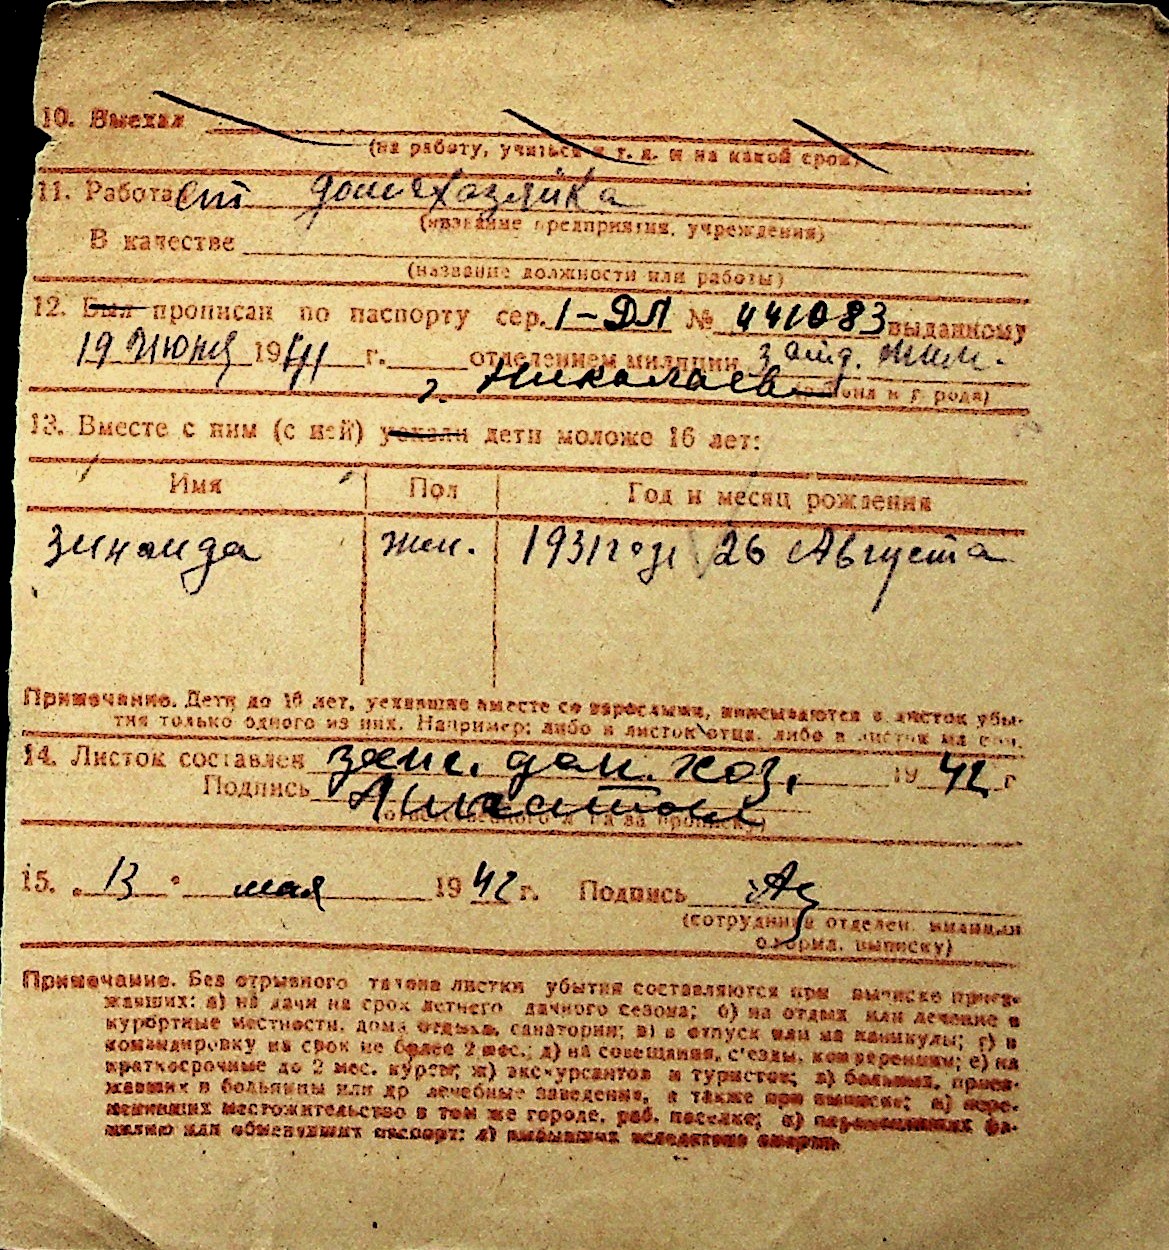 10. Выехал
(на работу, учиться и т. д. и на какой срок)
11. Работает домохазяйка
(название предприятия, учреждения)
В качестве
(название должности или работы)
12. Был прописан по паспорту сер. I-ДЛ № 441083 выданному
19 Июня 1941 г. отделением милиции 3 отд. мил.
г. Николаев
13. Вместе с ним (с ней) уехали дети моложе 16 лет:
Имя Пол Год и месяц рождения
Зинаида жен. 1931 году 26 Августа
Примечание. Дети до 16 лет, уехавшие вместе со взрослыми, вписываются в листок убы-
тия только одного из них. Например: либо в листок отца, либо в листок
14. Листок составлен дом. хоз. 1942 г
Подпись
15. „13" мая 1942 г. Подпись
(сотрудника отделен. милиции
оформл. выписку)
Примечание. Без отрывного талона листки убытия составляются при выписке приез-
жавших: а) на дачи на срок летнего дачного сезона; б) на отдых или лечение в
курортные местности, дома отдыха, санатории; в) в отпуск или на каникулы; г) в
командировку на срок не более 2 мес.; д) на совещания, съезды, конференции; е) на
краткосрочные до 2 мес. курсы; ж) экскурсантов и туристов; з) больных, приез-
жавших в больницы или др лечебные заведения, а также при выписке; и) пере-
менивших местожительство в том же городе, раб. поселке; к) переменивших фа-
милию или обменявших паспорт; л) выбывших вследствие смерти